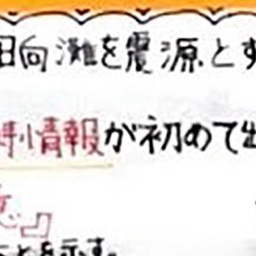 田向灘を震源とす
時情報が初めて出
意』
ことを示す。